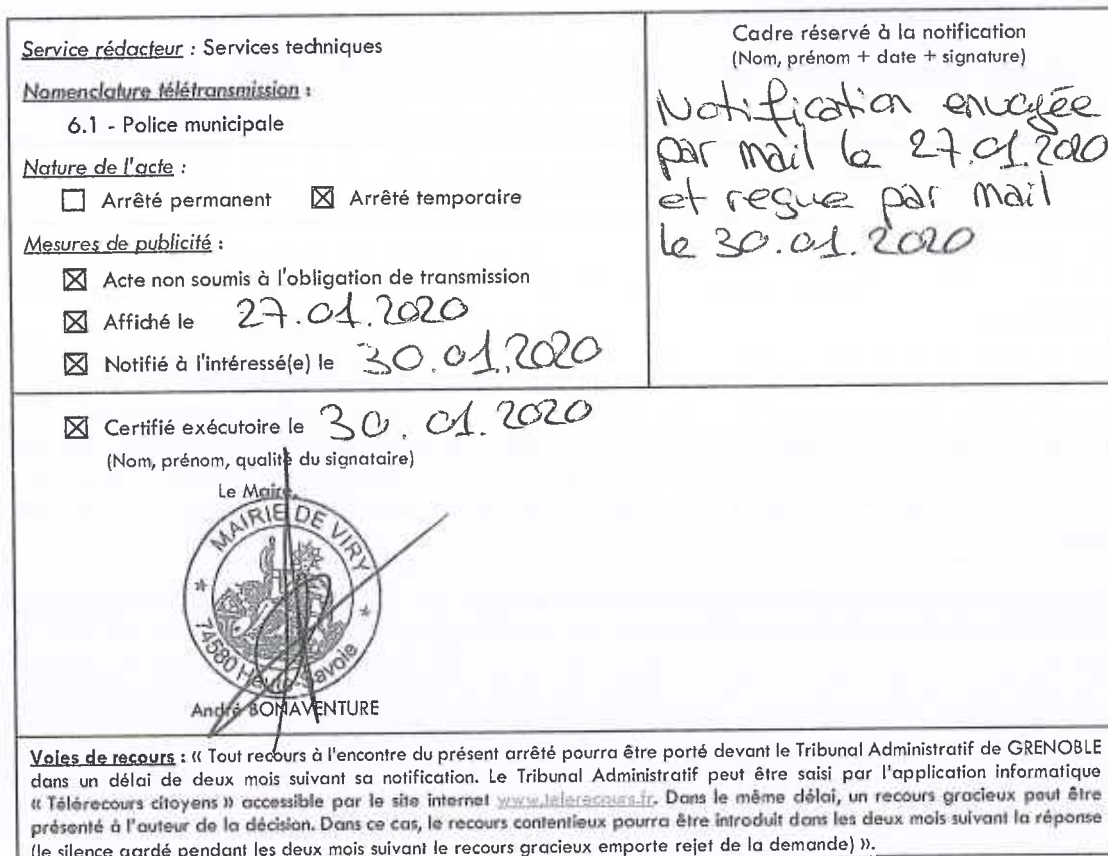 Service rédacteur : Services techniques
Nomenclature télétransmission :
6.1 - Police municipale
Nature de l'acte :
☐ Arrêté permanent ☒ Arrêté temporaire
Mesures de publicité :
☒ Acte non soumis à l'obligation de transmission
☒ Affiché le 27.01.2020
☒ Notifié à l'intéressé(e) le 30.01.2020
Cadre réservé à la notification
(Nom, prénom + date + signature)
Notification envoyée
par mail le 27.01.2020
et reçue par mail
le 30.01.2020
☒ Certifié exécutoire le 30.01.2020
(Nom, prénom, qualité du signataire)
Le Maire,
MAIRIE DE VIRY
74580 Haute-Savoie
André BONAVENTURE
Voies de recours : « Tout recours à l'encontre du présent arrêté pourra être porté devant le Tribunal Administratif de GRENOBLE
dans un délai de deux mois suivant sa notification. Le Tribunal Administratif peut être saisi par l'application informatique
« Télérecours citoyens » accessible par le site internet www.telerecours.fr. Dans le même délai, un recours gracieux peut être
présenté à l'auteur de la décision. Dans ce cas, le recours contentieux pourra être introduit dans les deux mois suivant la réponse
(le silence gardé pendant les deux mois suivant le recours gracieux emporte rejet de la demande) ».